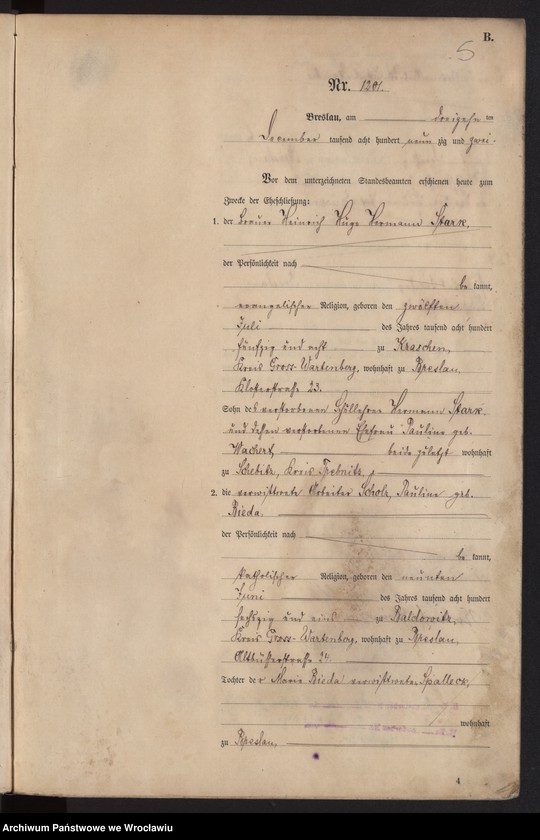 B.
5
Nr. 1201.
Breslau, am dreizehnten
December tausend acht hundert neun zig und zwei.
Vor dem unterzeichneten Standesbeamten erschienen heute zum
Zwecke der Eheschließung:
1. der Brauer Heinrich Hugo Hermann Stark,
der Persönlichkeit nach
be kannt,
evangelischer Religion, geboren den zwölften
Juli des Jahres tausend acht hundert
fünfzig und acht zu Kraschen,
Kreis Gross-Wartenberg, wohnhaft zu Breslau,
Klosterstraße 23.
Sohn des verstorbenen Hermann Stark
und dessen verstorbenen Ehefrau Pauline geb.
Wachert, beide zuletzt wohnhaft
zu Schebitz, Kreis Trebnitz,
2. die verwittwete Arbeiter Scholz, Pauline geb.
Bieda,
der Persönlichkeit nach
be kannt,
katholischer Religion, geboren den neunten
Juni des Jahres tausend acht hundert
sechszig und eins zu Baldowitz,
Kreis Gross-Wartenberg, wohnhaft zu Breslau,
Altbüßerstraße 24.
Tochter der Marie Bieda verwittweten Spalleck,
wohnhaft
zu Breslau,
4
Archiwum Państwowe we Wrocławiu